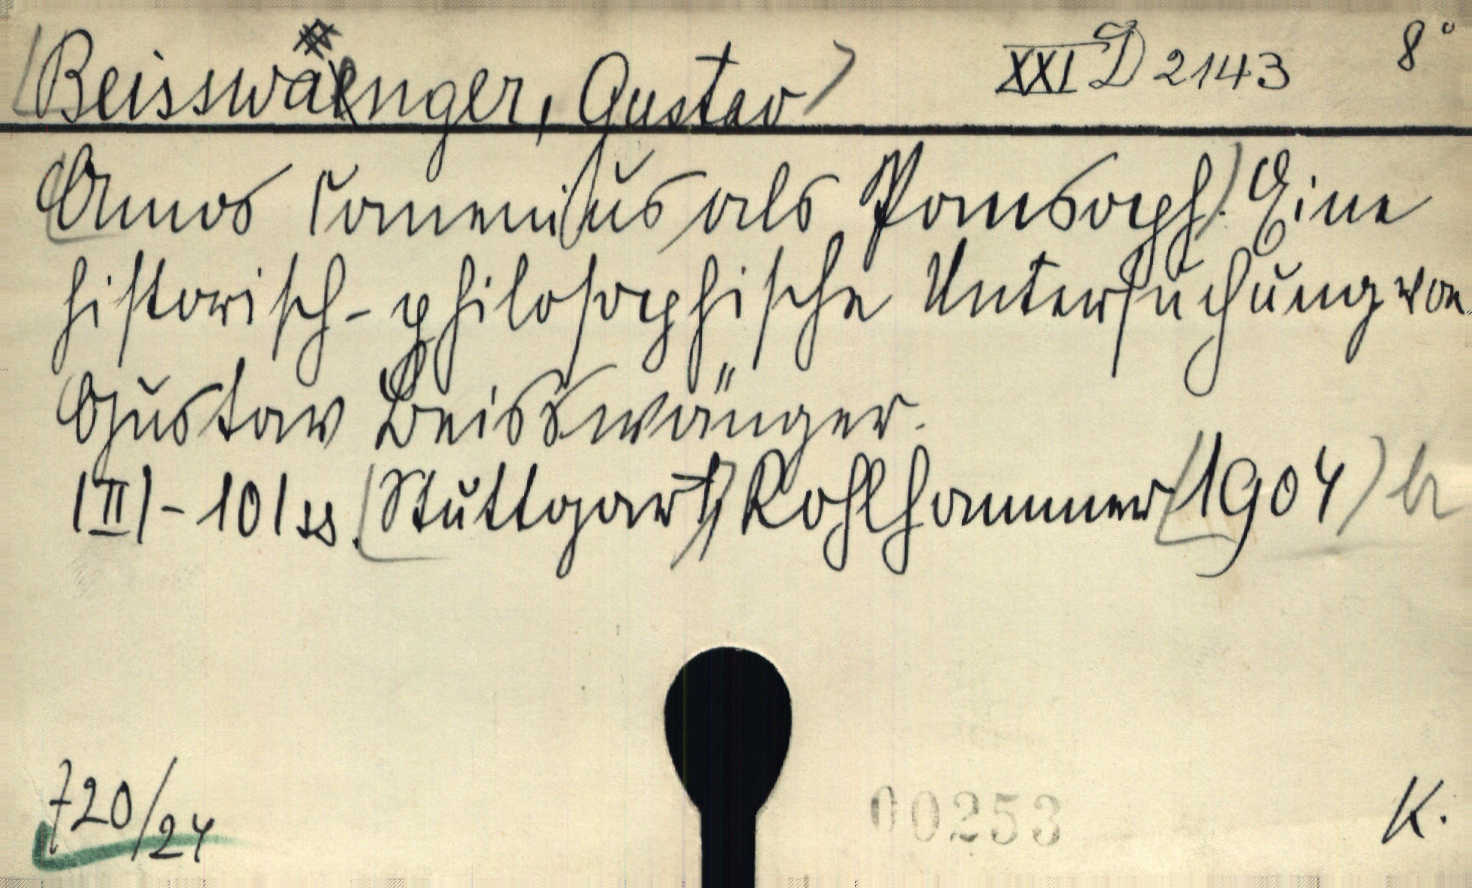 (Beisswänger, Gustav) XXI D 2143 8°
(Amos Comenius als Pansoph). Eine
historisch-philosophische Untersuchung von
Gustav Beisswänger.
|II|-101 ss. (Stuttgart) Kohlhammer (1904) br
720/24 00253 K.